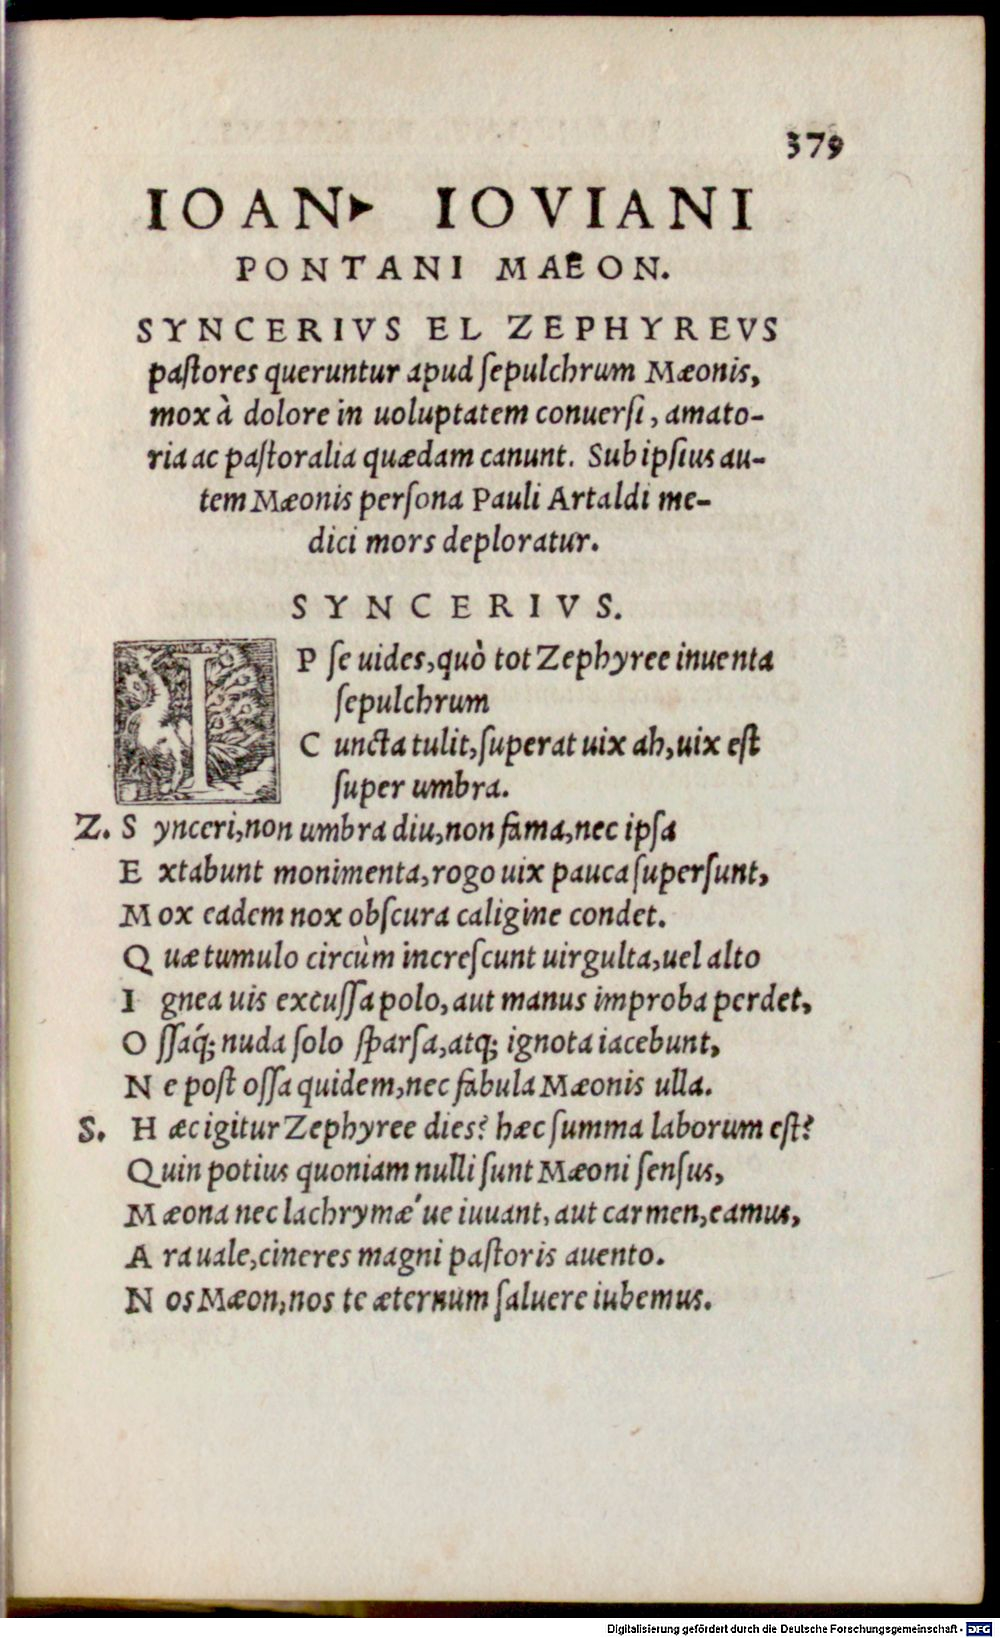 379
IOAN▸ IOVIANI
PONTANI MAEON.
SYNCERIVS EL ZEPHYREVS
paſtores queruntur apud ſepulchrum Mæonis,
mox à dolore in uoluptatem conuerſi, amato-
ria ac paſtoralia quædam canunt. Sub ipſius au-
tem Mæonis perſona Pauli Artaldi me-
dici mors deploratur.
SYNCERIVS.
IPſe uides, quò tot Zephyree inuenta
ſepulchrum
Cuncta tulit, ſuperat uix ah, uix eſt
ſuper umbra.
Z. Synceri, non umbra diu, non fama, nec ipſa
Extabunt monimenta, rogo uix pauca ſuperſunt,
Mox eadem nox obſcura caligine condet.
Quæ tumulo circùm increſcunt uirgulta, uel alto
Ignea uis excuſſa polo, aut manus improba perdet,
Oſſaq́; nuda ſolo ſparſa, atq; ignota iacebunt,
Ne poſt oſſa quidem, nec fabula Mæonis ulla.
S. Hæc igitur Zephyree dies? hæc ſumma laborum eſt?
Quin potius quoniam nulli ſunt Mæoni ſenſus,
Mæona nec lachrymæ´ue iuuant, aut carmen, eamus,
Ara uale, cineres magni paſtoris aueto.
Nos Mæon, nos te æternum ſaluere iubemus.
Digitalisierung gefördert durch die Deutsche Forschungsgemeinschaft - DFG